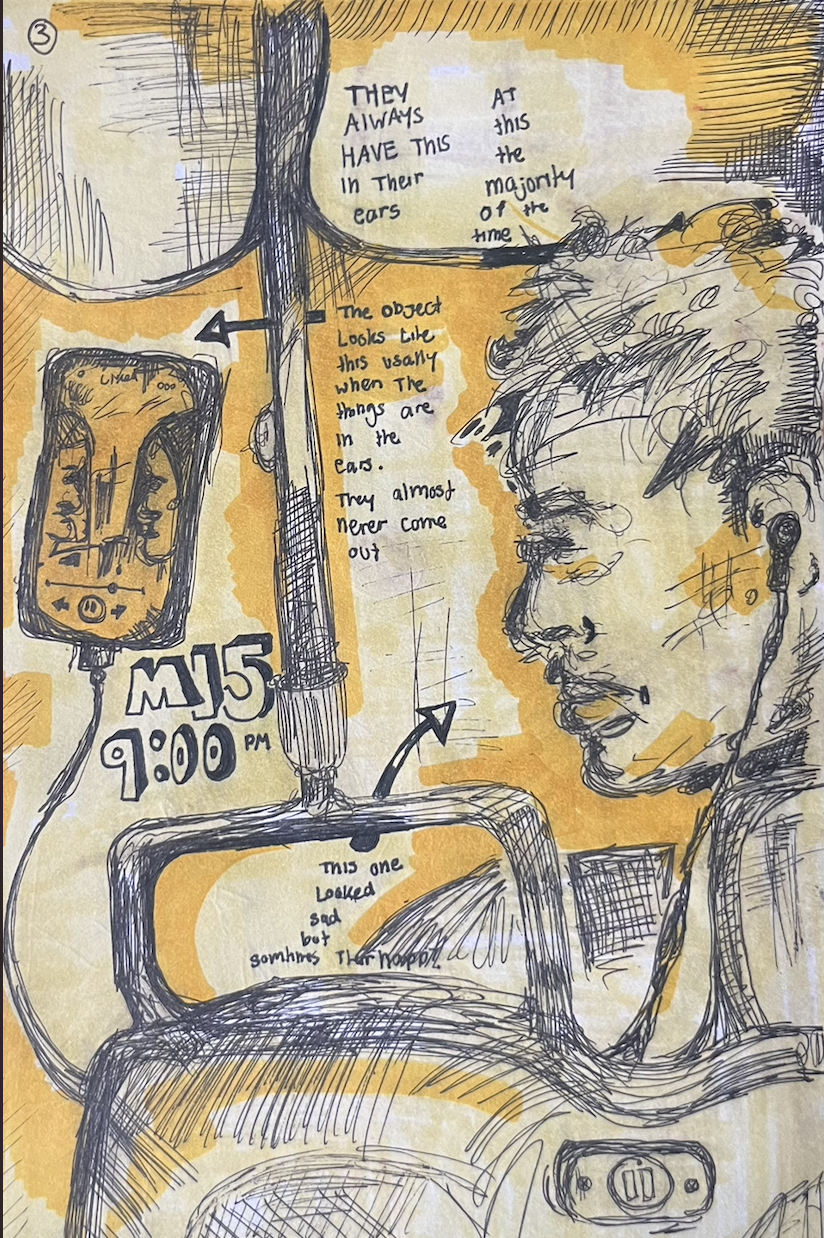 3
THEY
AlWAYS
HAVE THIS
In Their
ears
AT
this
the
majority
of the
time
The object
Looks like
this usally
when The
things are
in the
ears.
They almost
nerer come
out
MJ5
9:00 PM
This one
Looked
sad
but